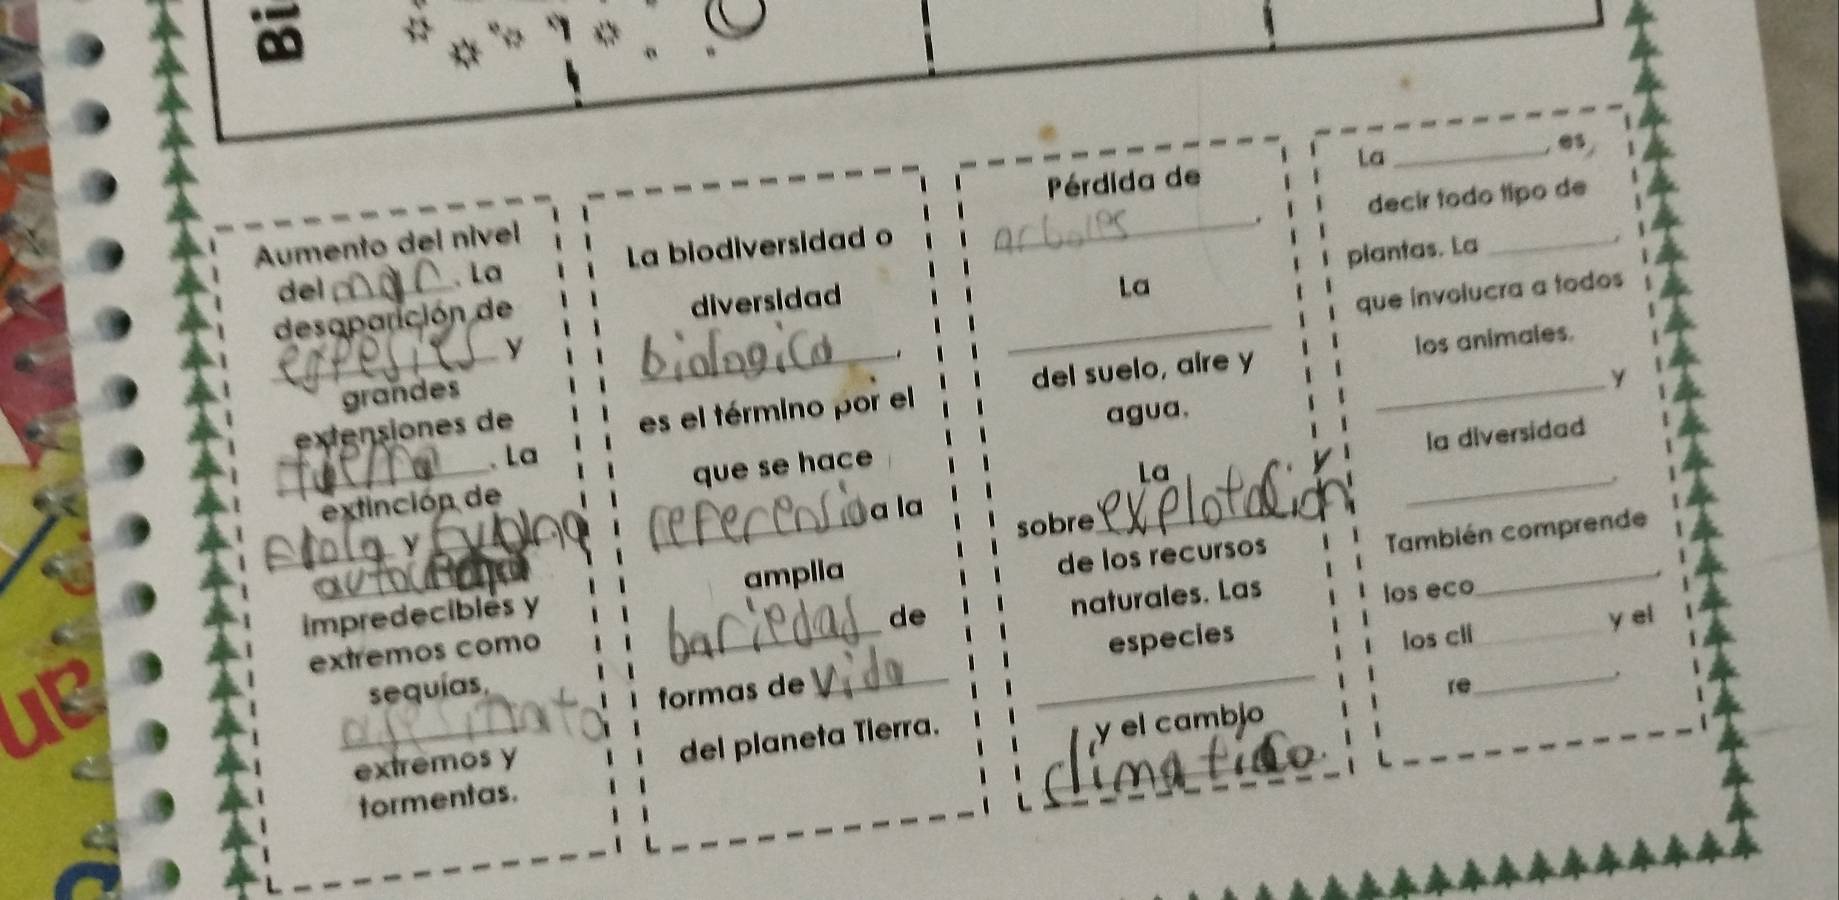 Bi
Aumento del nivel
del mar. La
desaparición de
espesies y
grandes
extensiones de
tierra. La
extinción de
y
impredecibles y
extremos como
sequías,
extremos y
tormentas.
La biodiversidad o
diversidad
biologica,
es el término por el
que se hace
referensia a la
amplia
bariedad de
formas de vida
del planeta Tierra.
Pérdida de
arboles.
La
del suelo, aire y
agua.
La
sobre explotacion
de los recursos
naturales. Las
especies
y el cambio
climatico.
La , es
decir todo tipo de
plantas. La ,
que involucra a todos
los animales.
y
la diversidad
.
También comprende
los eco ,
los cli y el
re .